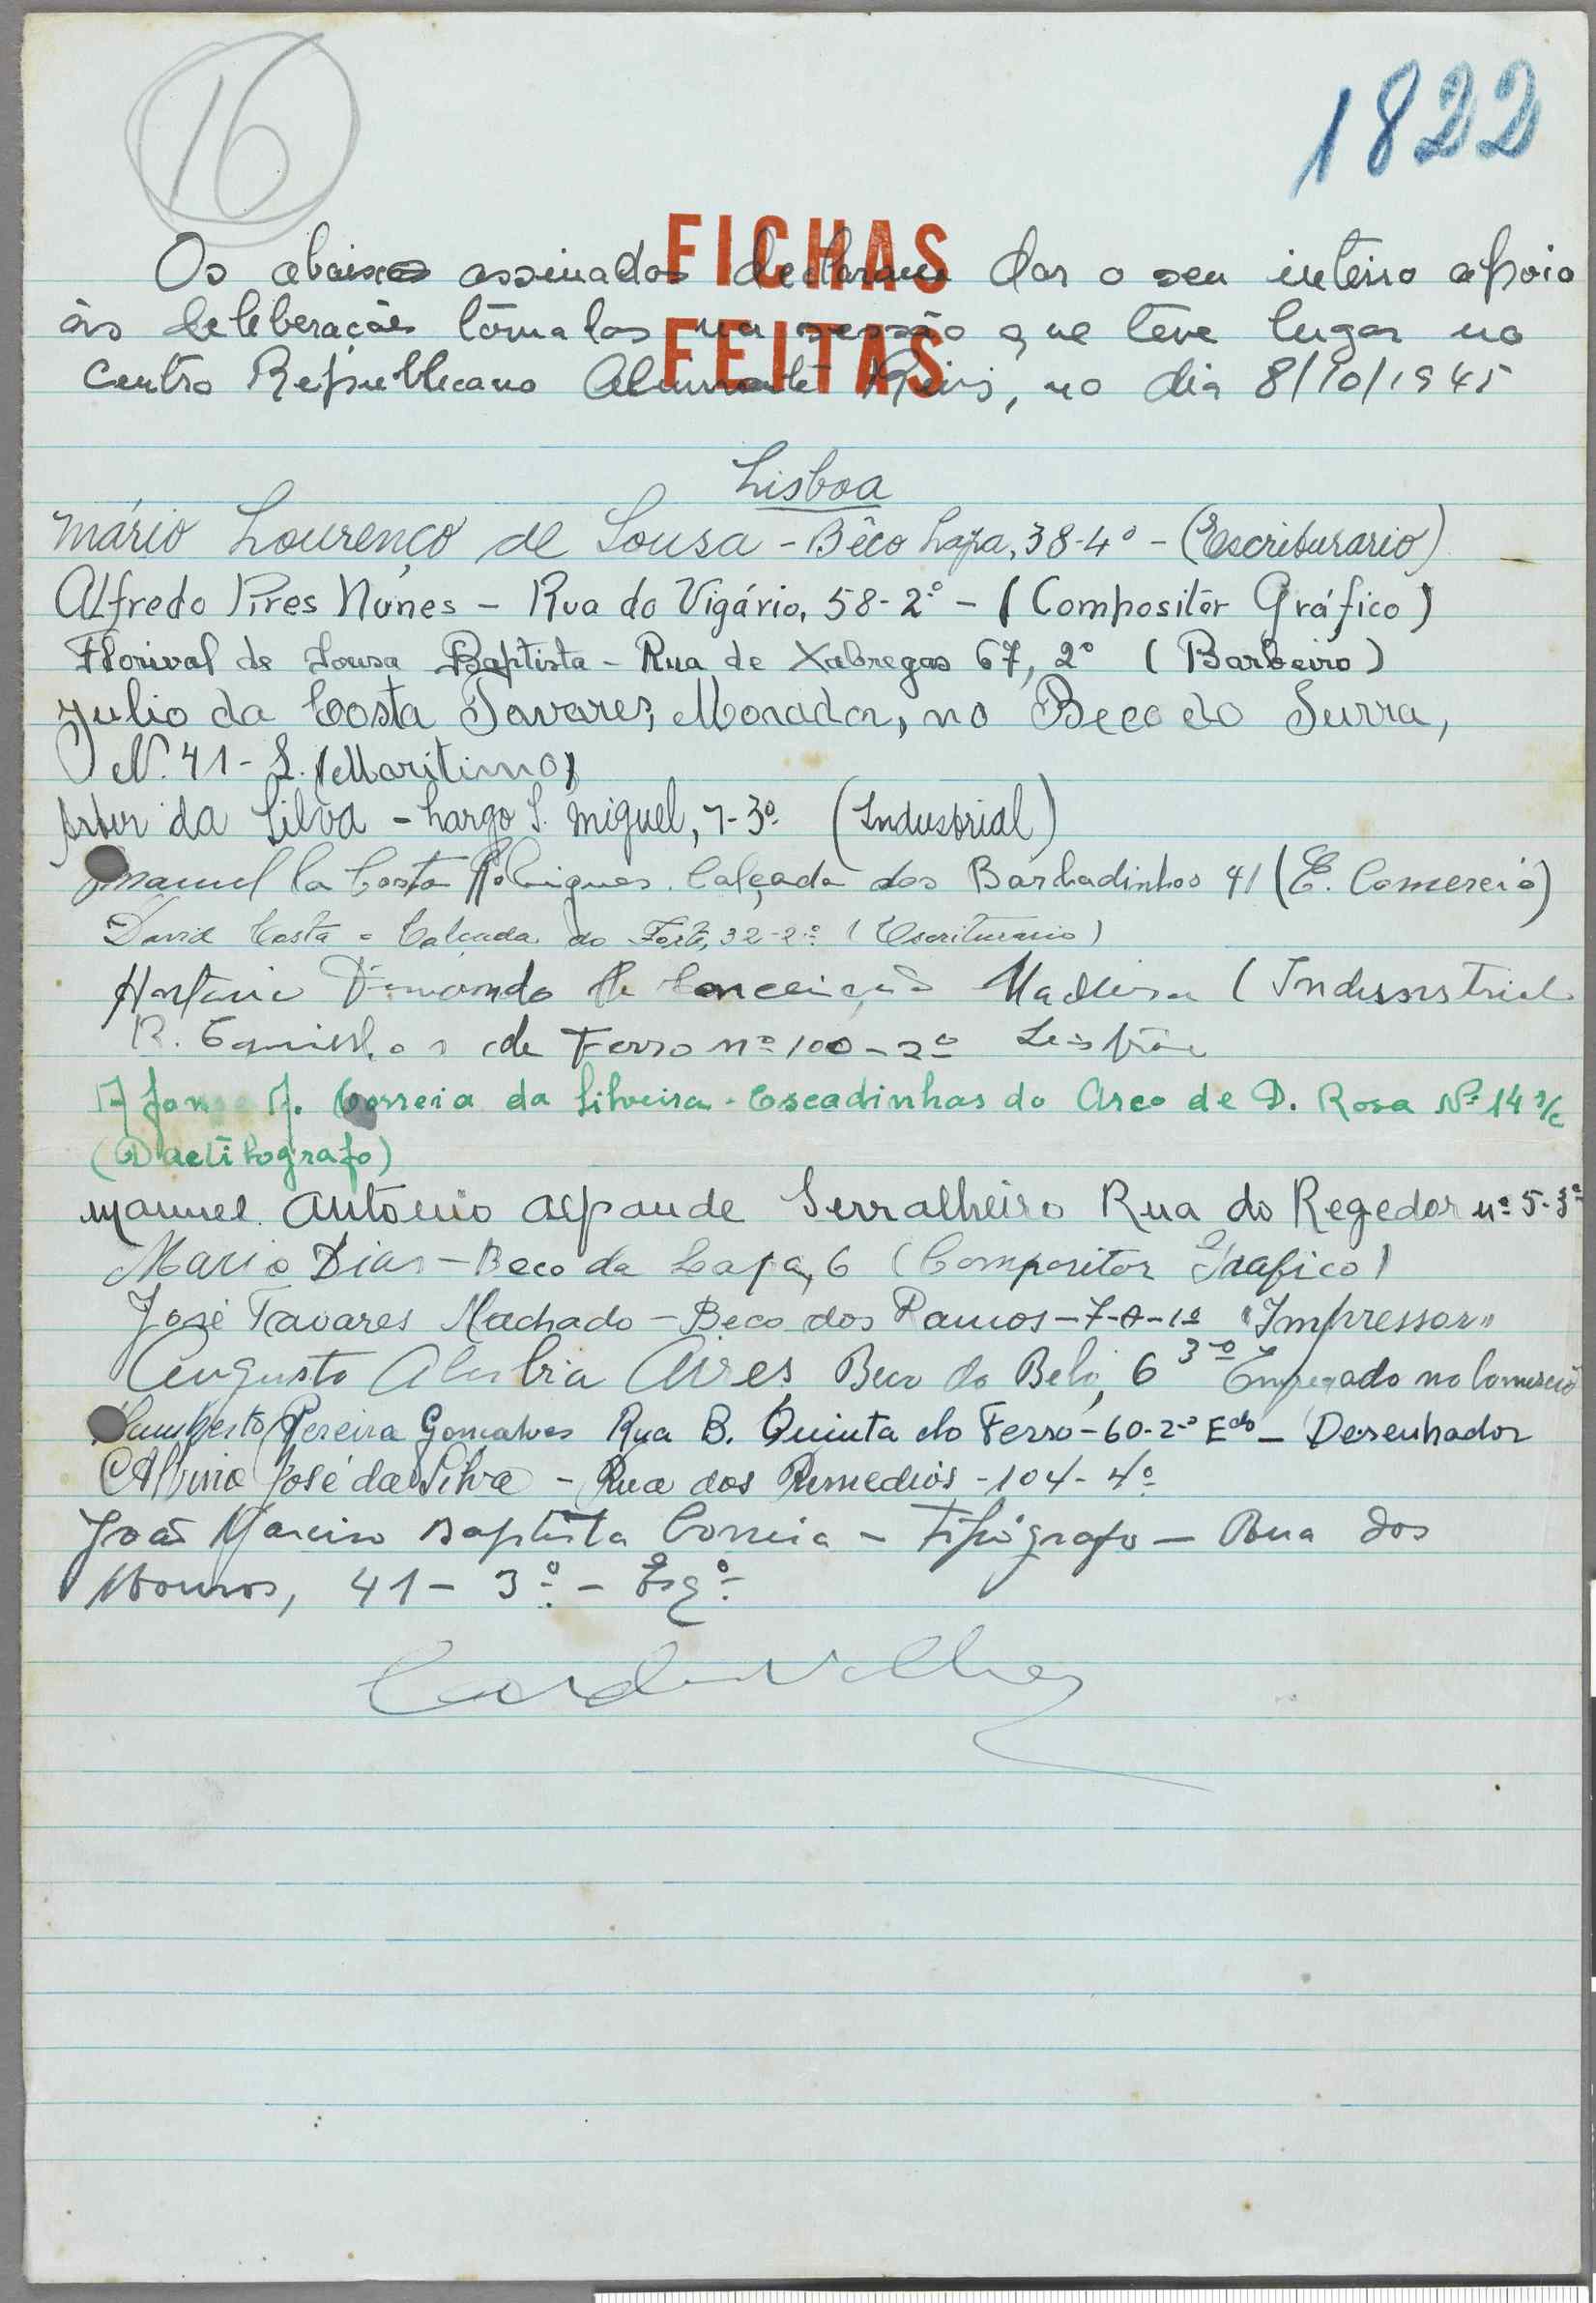 16
1822
FICHAS
FEITAS
Os abaixo assinados declaram dar o seu inteiro apoio
às deleberações tômadas na sessão que teve lugar no
Centro Republicano Almirante Reis, no dia 8/10/1945
Lisboa
Mário Lourenço de Sousa - Bêco Lapa, 38-4º - (Escriturario)
Alfredo Pires Nunes - Rua do Vigário, 58-2º - (Compositôr Gráfico)
Florival de Sousa Baptista - Rua de Xabregas 67, 2º (Barbeiro)
Julio da Costa Tavares, Morador, no Beco do Surra,
Nº 41- L. (Maritimo)
Artur da Silva - Largo S. Miguel, 7-3º (Industrial)
Manuel da Costa Rodrigues. Calçada dos Barbadinhos 41 (E. Comercio)
David Costa - Calçada do Forte, 32-2º (Escriturario)
Fernando de Conceição Madeira (Indusnstrial
R. Caminhos de Ferro nº 100-2º Lisboa
Afonso J. Correia da Silveira - Escadinhas do Arco de D. Rosa Nº 14 r/c
(Dactilografo)
Manuel Antonio Alpande Serralheiro Rua do Regedor nº 5-3º
Mario Dias - Beco da Lapa, 6 (Compositor Grafico)
José Tavares Machado - Beco dos Ramos - 7-A-1º "Impressor"
Augusto Aires Beco do Belo, 6 3º Empregado no Comercio
Humberto Pereira Gonçalves Rua B. Quinta do Ferro - 60-2º Edo - Desenhador
Albino José da Silva - Rua dos Remedios - 104-4º
João Baptista Correia - Tipógrafo - Rua dos
Mouros, 41 - 3º - Esqº